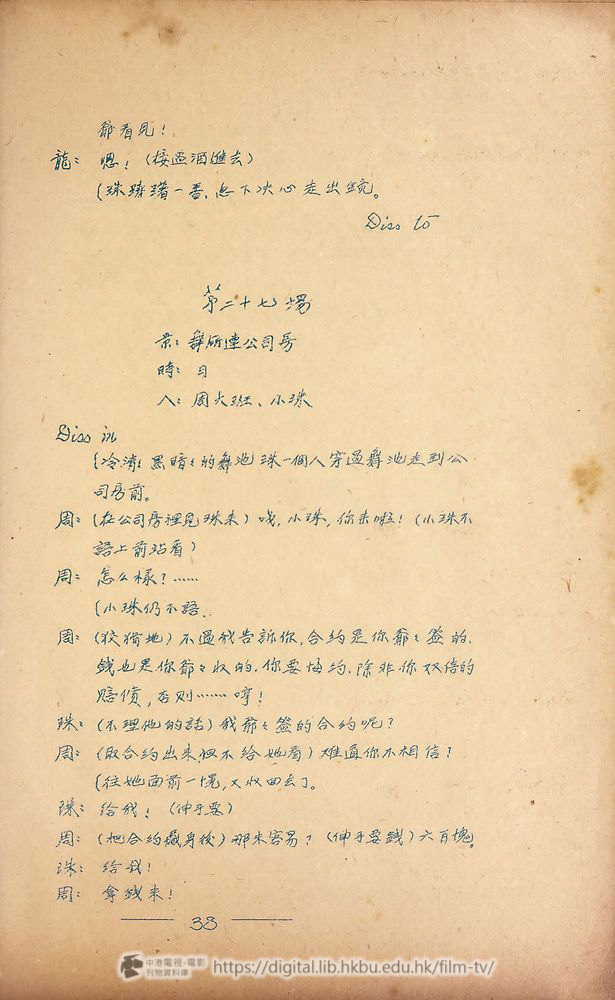 爺看見！
龍：嗯！（接過酒進去）
（珠躊躇一番、忽下决心走出鏡。
Diss to
第二十七塲
景：舞所連公司房
時：日
人：周大班、小珠
Diss in
（冷清清黑暗々的舞池珠一個人穿過舞池走到公
司房前。
周：（在公司房裡見珠来）哦，小珠，你来啦！（小珠不
語上前站着）
周：怎么樣？……
（小珠仍不語．
周：（狡猾地）不過我告訴你，合約是你爺々簽的，
錢也是你爺々收的，你要悔約，除非你双倍的
賠償，否則……哼！
珠：（不理他的話）我爺々簽的合約呢？
周：（取合約出来但不給她看）难道你不相信？
（往她面前一愰，又收回去了。
珠：給我！（伸手要）
周：（把合約藏身後）那末容易？（伸手要錢）六百塊。
珠：給我！
周：拿錢来！
33
中港電視-電影
刊物資料庫
https://digital.lib.hkbu.edu.hk/film-tv/